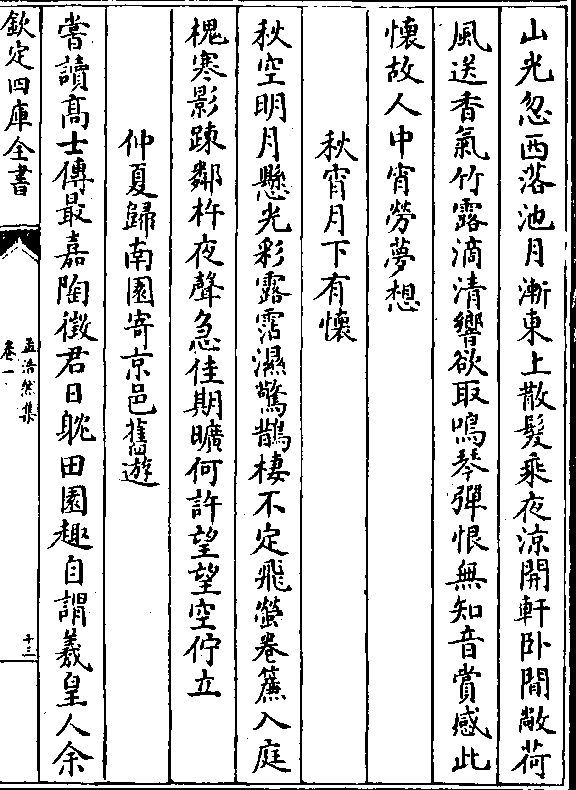 山光忽西落池月漸東上散髮乘夜涼開軒卧閒敞荷
風送香氣竹露滴清響欲取鳴琴彈恨無知音賞感此
懷故人中宵勞夢想
秋宵月下有懷
秋空明月懸光彩露霑濕驚鵲棲不定飛螢卷簾入庭
槐寒影踈鄰杵夜聲急佳期曠何許望望空佇立
仲夏歸南園寄京邑舊遊
嘗讀髙士傳最嘉陶徵君日躭田園趣自謂羲皇人余
欽定四庫全書
孟浩然集
卷一
十三